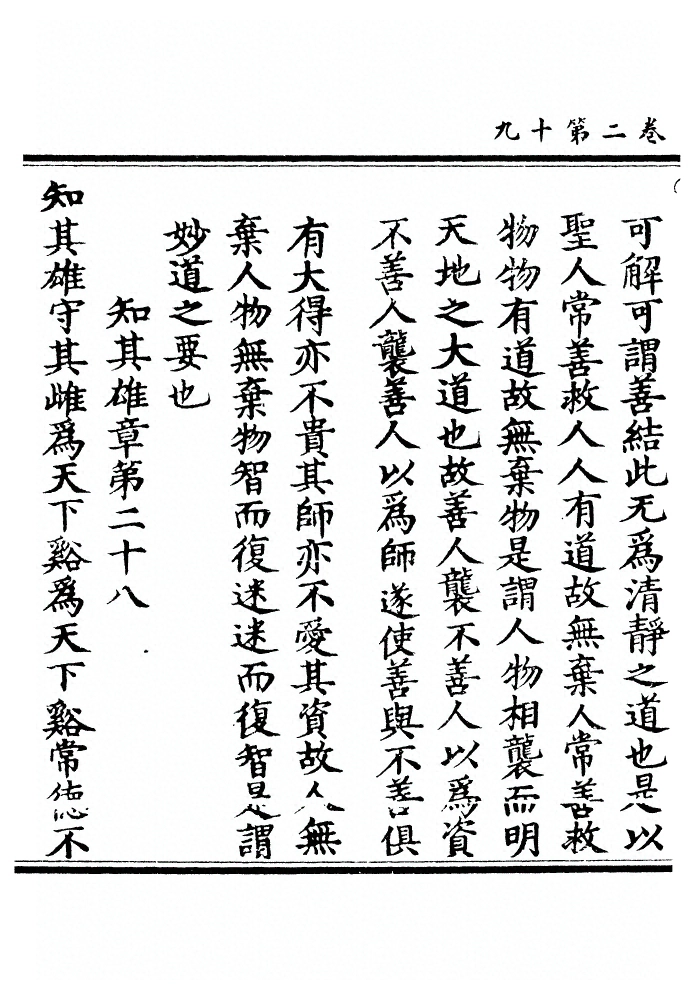 卷二第十九
可解可謂善結此无爲清靜之道也是以
聖人常善救人人有道故無棄人常善救
物物有道故無棄物是謂人物相襲而明
天地之大道也故善人襲不善人以爲資
不善人襲善人以爲師遂使善與不善俱
有大得亦不貴其師亦不愛其資故人無
棄人物無棄物智而復迷迷而復智是謂
妙道之要也
知其雄章第二十八
知其雄守其雌爲天下谿爲天下谿常德不